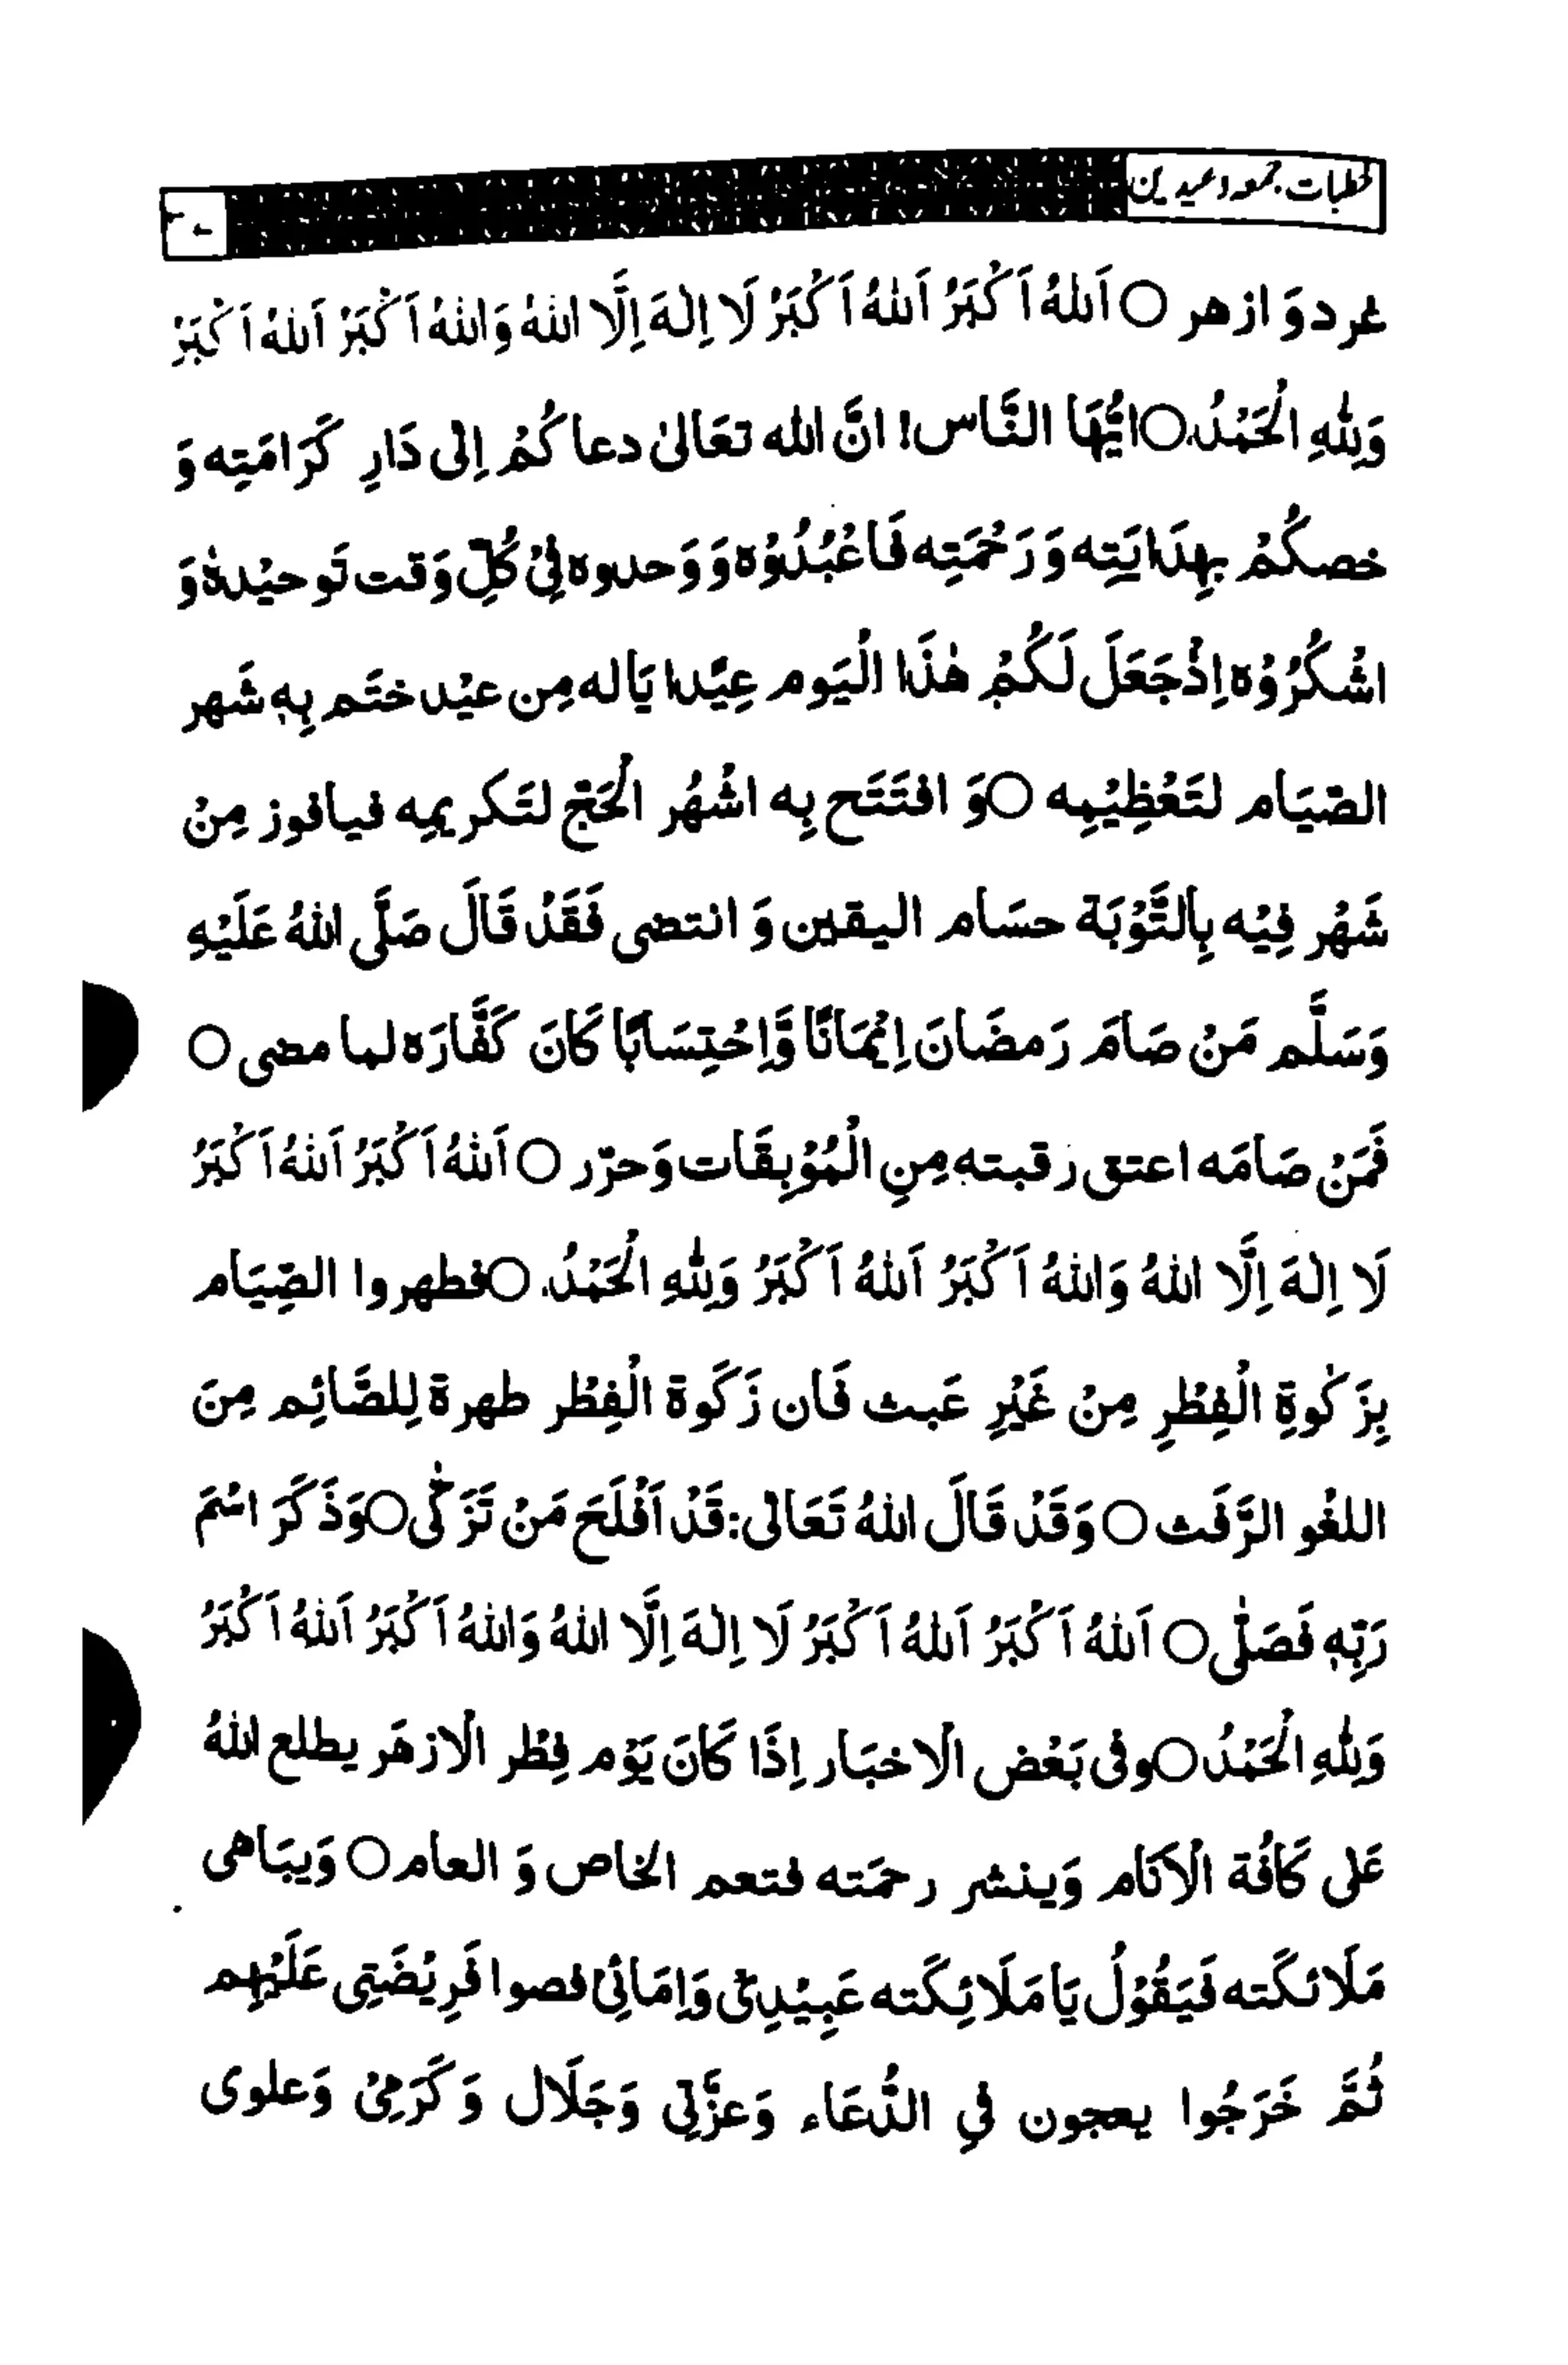 خطبات جمعہ و عیدین
غرد وَ ازهر ○ اَللهُ اَكْبَرُ اَللهُ اَكْبَرُ لَا اِلٰهَ اِلَّا اللهُ وَاللهُ اَكْبَرُ اَللهُ اَكْبَرُ
وَلِلّٰهِ الْحَمْدُ ○ اَيُّهَا النَّاس! انَّ الله تعَالىٰ دعا كُمْ اِلى دَارِ كَرَامَتِه وَ
خصكُمْ بِهِدَايَتِه وَ رَحْمَتِه فَاعْبُدُوْه وَ وَحدوه فِىْ كُلِّ وَقت تَوحيْدهٗ وَ
اشْكُرُوْه اِذْجَعَلَ لَكُمْ هٰذَا الْيَوم عِيْدا يَاله مِن عيْد ختَم بِهٖ شَهر
الصّيَام لتَعْظِيْمِه ○ وَ افتَتَح بِه اشْهُر الْحَجّ لتَكريمِه فيافوز مِنْ
شَهْر فِيْه بِالتَّوْبَة حسَام اليقين وَ انتضى فَقَدْ قَالَ صَلَّى اللهُ عَلَيْهِ
وَسَلَّم مَنْ صَامَ رَمضَانَ اِيْمَانًا وَّاِحْتِسَابًا كَانَ كَفَّارَه لما مضى ○
فَمَنْ صَامَه اعتق رقبته مِنِ الْمُوْبِقَات وَحرّر ○ اَللهُ اَكْبَرُ اَللهُ اَكْبَرُ
لَا اِلٰهَ اِلَّا اللهُ وَاللهُ اَكْبَرُ اَللهُ اَكْبَرُ وَلِلّٰهِ الْحَمْدُ. ○ فطهروا الصِّيَام
بِزَكٰوةِ الْفِطْرِ مِنْ غَيْرِ عَبث فَان زَكَوة الْفِطْر طهرة لِلصَّائِم مِنَ
اللغْو الرَّفَث ○ وَقَدْ قَالَ اللهُ تَعَالى: قَدْ اَفْلَحَ مَنْ تَزَكّٰى ○ وَذَكَرَ اسْمَ
رَبِّهٖ فَصَلّٰى ○ اَللهُ اَكْبَرُ اَللهُ اَكْبَرُ لَا اِلٰهَ اِلَّا اللهُ وَاللهُ اَكْبَرُ اَللهُ اَكْبَرُ
وَلِلّٰهِ الْحَمْدُ ○ وفى بَعْض الْاخبَار اِذَا كَانَ يَوْم فِطْر الْازهَر يطلع اللهُ
عَلى كَافُة الْاَنَام وَينشر رحمَته فتعم الخاص وَ العام ○ وَيبَاهى
مَلَائكَته فَيَقُوْلُ يَا مَلَائِكَته عَبِيْدِىْ وَاِمَائِىْ فصوا فَرِيْضَتِى عَلَيْهِم
ثُمَّ خَرَجُوا يعجون فِي الدُّعَاء وَعزَّتِي وَجَلَال وَكَرَمِىْ وَعلوى